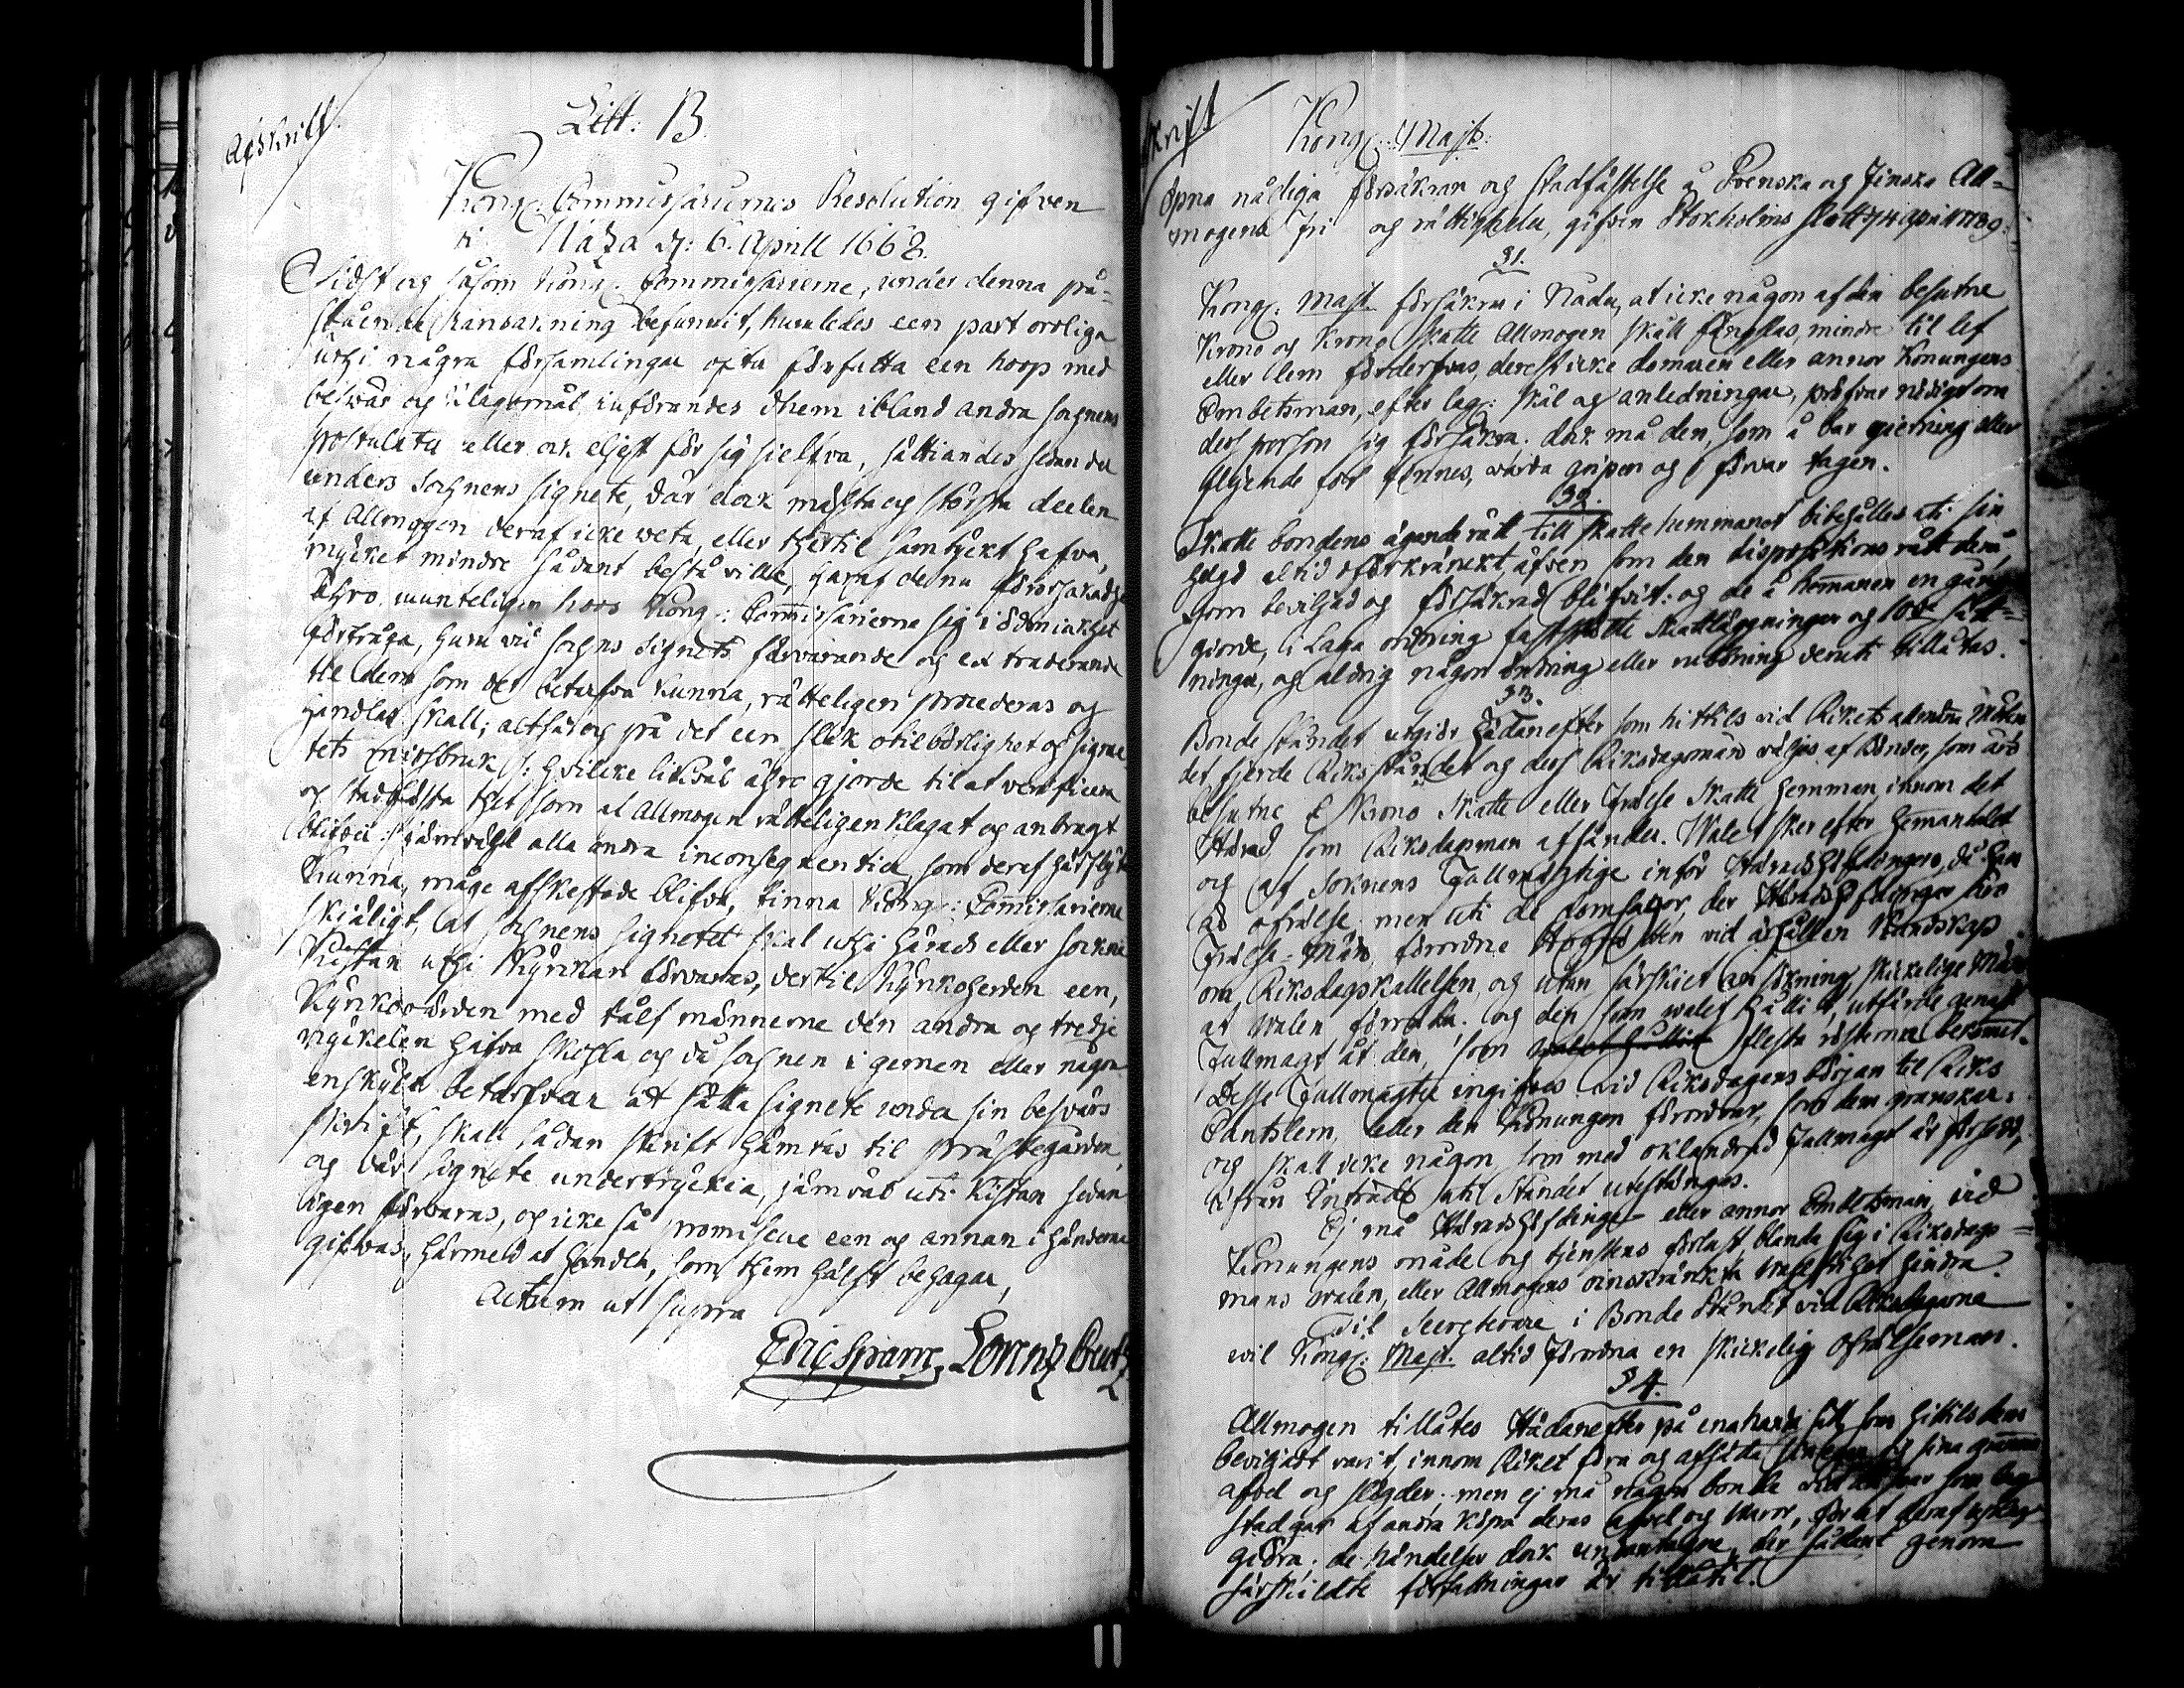 Afskrift.
Litt: B.
Kongl. Commissariernes Resolution gifven
i Naza d: 6. Aprill 1668.
Sidst og såsom Kongl. Commissarierne, under denna på-
stående Ransakning befunnit, huruledes een part oroliga
uthi några församlingar ofta författa een hoop med
beswär og klagomål, införandes dhem ibland andra sochnens
postulater eller ock eljest för sig sielfva, sättiandes sedan der
under Sochnens signete, där dock mästa og största deelen
af Allmogen deraf icke weta, eller thertil samtyckt hafva,
mycket mindre sådant bestå ville, haraf de nu förorsakadhe
åhro munteligen hoos Kongl: Commissarierne sig i ödmiukhet
förfråga, huru vid sochns signets förvarande og extraderande
til dem som det betarfva kunna, rätteligen procederas og
handlas skall; altså og på det een slik otilbörlighet og signe-
tets missbruk /: hvilcke likwäl ähre gjorde til at verificera
og stadfästa thet som af Allmogen rätteligen klagat og anbragt
blifvit :/ jämwähl alla andra inconseqventier, som deraf härflyta
kunna, måge afskaffade blifva, finna Kongl: Commissarierne
skjäligt, at sochnens signetet skal uthi härads eller sochne
Kistan uthi Kyrckan förvaras, dertil Kyrkoherden een,
Kyrkowärden med tålf männerne den andra og tredje
nyckelen hafva skohla og då sochnen i gemen eller någon
enskyldt betarfvar at sätta signete under sin beswärs
skrift, skall sådan skrift hämtas til prästegården,
og där signete undertryckia, jämwäl uti Kistan sedan
igen förwaras, og icke så promiscue een og annan i händerna
gifwas, härmed at handla, som them hälst behagar,
Actum ut supra
Eric Sparre, Lorentz Creutz
Kongl: Majts:
Öpna nådiga försäkran og stadfästelse å Svenska og Finska All-
mogens fri og rättigheter, gifven Stockholms slott d 4 April 1789.
§ 1.
Kongl. Majt. försäkrar i Nåder, at icke någon af den besutne
Krono og Krono Skatte Allmogen skall fängslas, mindre til lif
eller lem förderfvas, derest icke domaren eller annor Konungens
Embetsman, efter lag: skäl og anledningar, pröfvar nödigt om
dess person sig försäkra. dock må den, som å bar gierning eller
flyende fot finnes, warda gripen og i förvar tagen.
§ 2.
Skatte bondens ägande rätt till skatte hemmanet bibehålles uti sin
helgd altid oförkränckt, äfven som den dispositions rätt derå,
som beviljad og försäkrad blifvit: og de å hemmanen en gång
giorde, i Laga ordning fastställte Skattläggningar og
ningar, og aldrig någon ändring eller rubbning deruti tillåtas.
§ 3.
Bonde ståndet utgiör hädanefter som hittils vid Rikets allmäna Möten
det fjerde Riks ståndet og dess Riksdagsmän väljas af Bönder, som äro
besutne å Krono Skatte eller Frälse Skatte hemman, innom det
Härad som Riksdagsman afsänder. Walet sker efter hemantalet
og af Socknens Fullmägtige inför Häradshöfdingen, då han
är ofrälse, men uti de domsagor, der Häradshöfdingar äro
Frälse-Män, förordne Hofrätten vid ärhållen Kundskap
om Riksdagskallelsen, og utan särskilt ansökning, skickelige Män
at walen förrätta. og den som walet hållit, utfärde genast
Fullmagt åt den, som flesta rösterna bekommit.
Desse Fullmagter ingifvas vid Riksdagens början til Riks
Cantslern, eller den Konungen förordnar, som dem granskar:
og skall icke någon som med oklandrad Fullmagt är försedd,
ifrån Inträde uti Ståndet utestängas.
Ej må Häradshöfdinge eller annor Embetsman, vid
Konungens onåde og tjenstens förlust, blanda sig i Riksdags-
mans walen, eller Allmogens oinskränckta walfrihet hindra.
Til Secreterare i Bonde Ståndet vid Riksdagarna
wil Kongl: Majt. altid förordna en skickelig ofrälseman.
§ 4.
Allmogen tillåtes Hädanefter på enahanda sätt, som hitils dem
bevijadt varit, innom Riket föra og afsätta sina
afvel og slögder: men ej må någon bonde vid answar som lag
stadgar af andra köpa deras afvel og waror, för at deraf uphag
giöra: de händelser dock undantagne, der sådant genom
särskildte författningar är tillåtit.